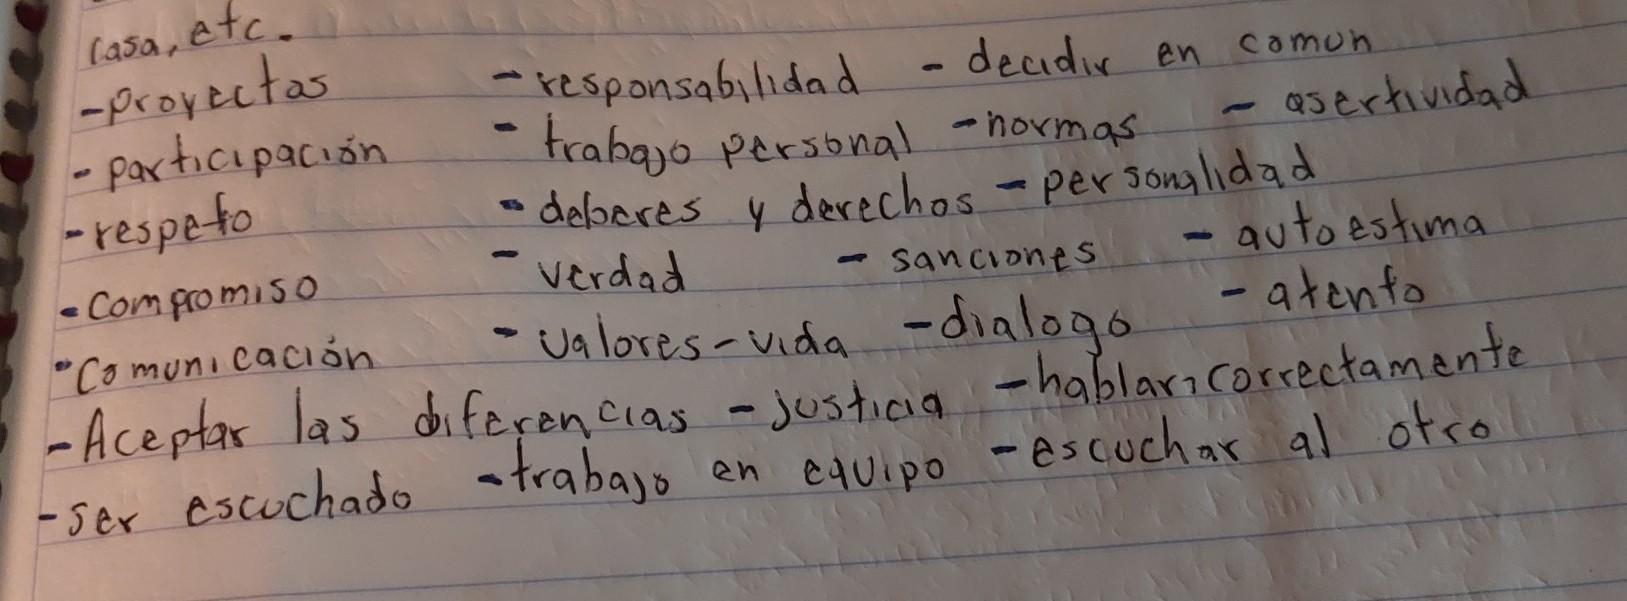 casa, etc.
-proyectos -responsabilidad -decidir en comun
-participación -trabajo personal -normas -asertividad
-respeto -deberes y derechos -personalidad
-compromiso -verdad -sanciones -autoestima
-comunicación -valores-vida -dialogo -atento
-Aceptar las diferencias -justicia -hablar, correctamente
-ser escuchado -trabajo en equipo -escuchar al otro